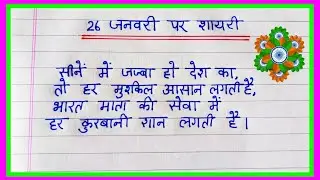 26 जनवरी पर शायरी
सीने में जज्बा हो देश का,
तो हर मुश्किल आसान लगती है,
भारत माता की सेवा में
हर कुरबानी शान लगती है।